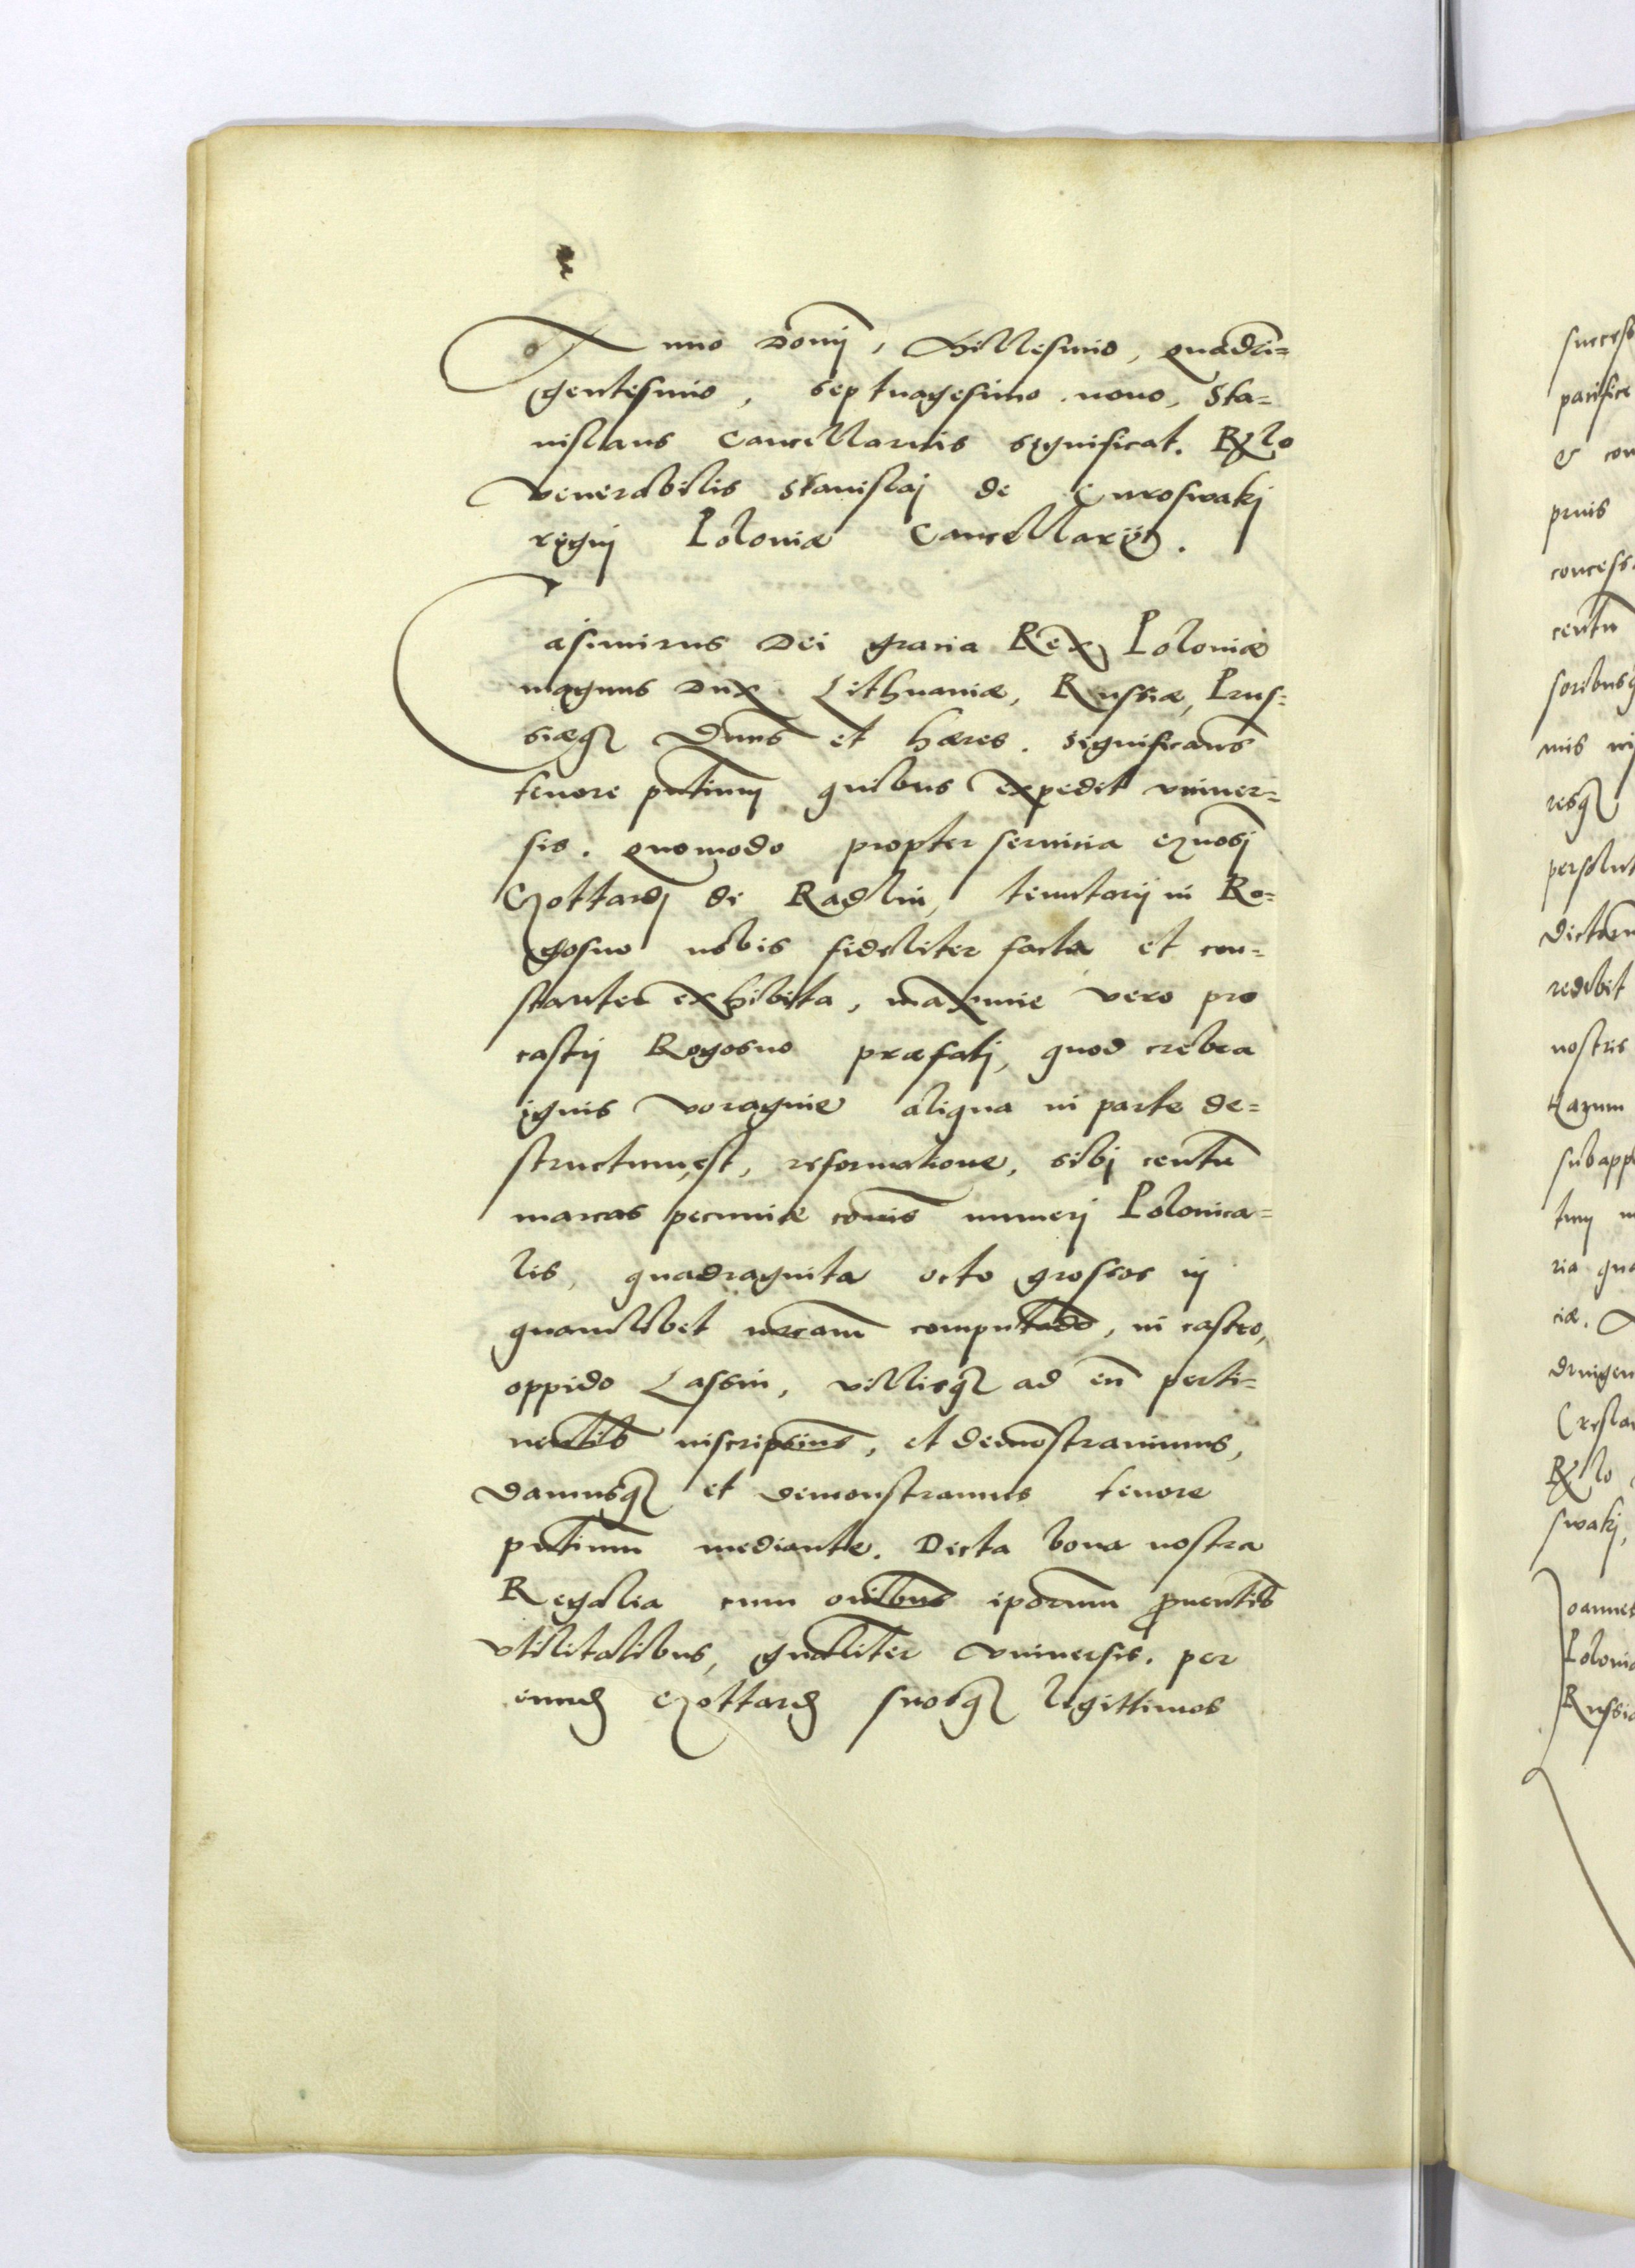 Anno Domij, Millesimo, quadri=
gentesimo, septuagesimo nono, Sta=
nislaus Cancellarius significat. Rlo
Venerabilis Stanislaj de Curoswakj
regnj Poloniæ Cancellarij.
Casimirus Dei gracia Rex Poloniæ
magnus Dux Lithuaniæ, Russiæ, Prus=
siæq3 Dnns et hæres. Significans
tenore pntium quibus expedit vniver=
sis. quomodo propter servicia
de Radlin, tenutarij in Ro=
gosno nobis fideliter facta et con=
stanter exhibita, maxime vero pro
castrj Rogosno præfatj, quod crebra
ignis voragine aliqua in parte de=
structum,est, reformatione, sibj centu
marcas pecuniæ cois numerj Polonica=
lis, quadraginta octo grossos in
quamlibet mrcam computado, in castro,
oppido Lassin, villisq3 ad eu perti=
nentib inscripsius, et demostravimus,
damusq3 et demonstramus tenore
pntium mediante. Dicta bona nostra
Regalia cum oibus ipsorum pventib
vtilitatibus, gnaliter vniversis. per
eund suosq3 legittimos
succes
pacifice
& con
prius
concess
centu
soribusq
resq3
persolut
dictaru
redibit
nostris
subapp
ria qua
ciæ.
Rlo
swakj,
Joannes
Poloni
Russi